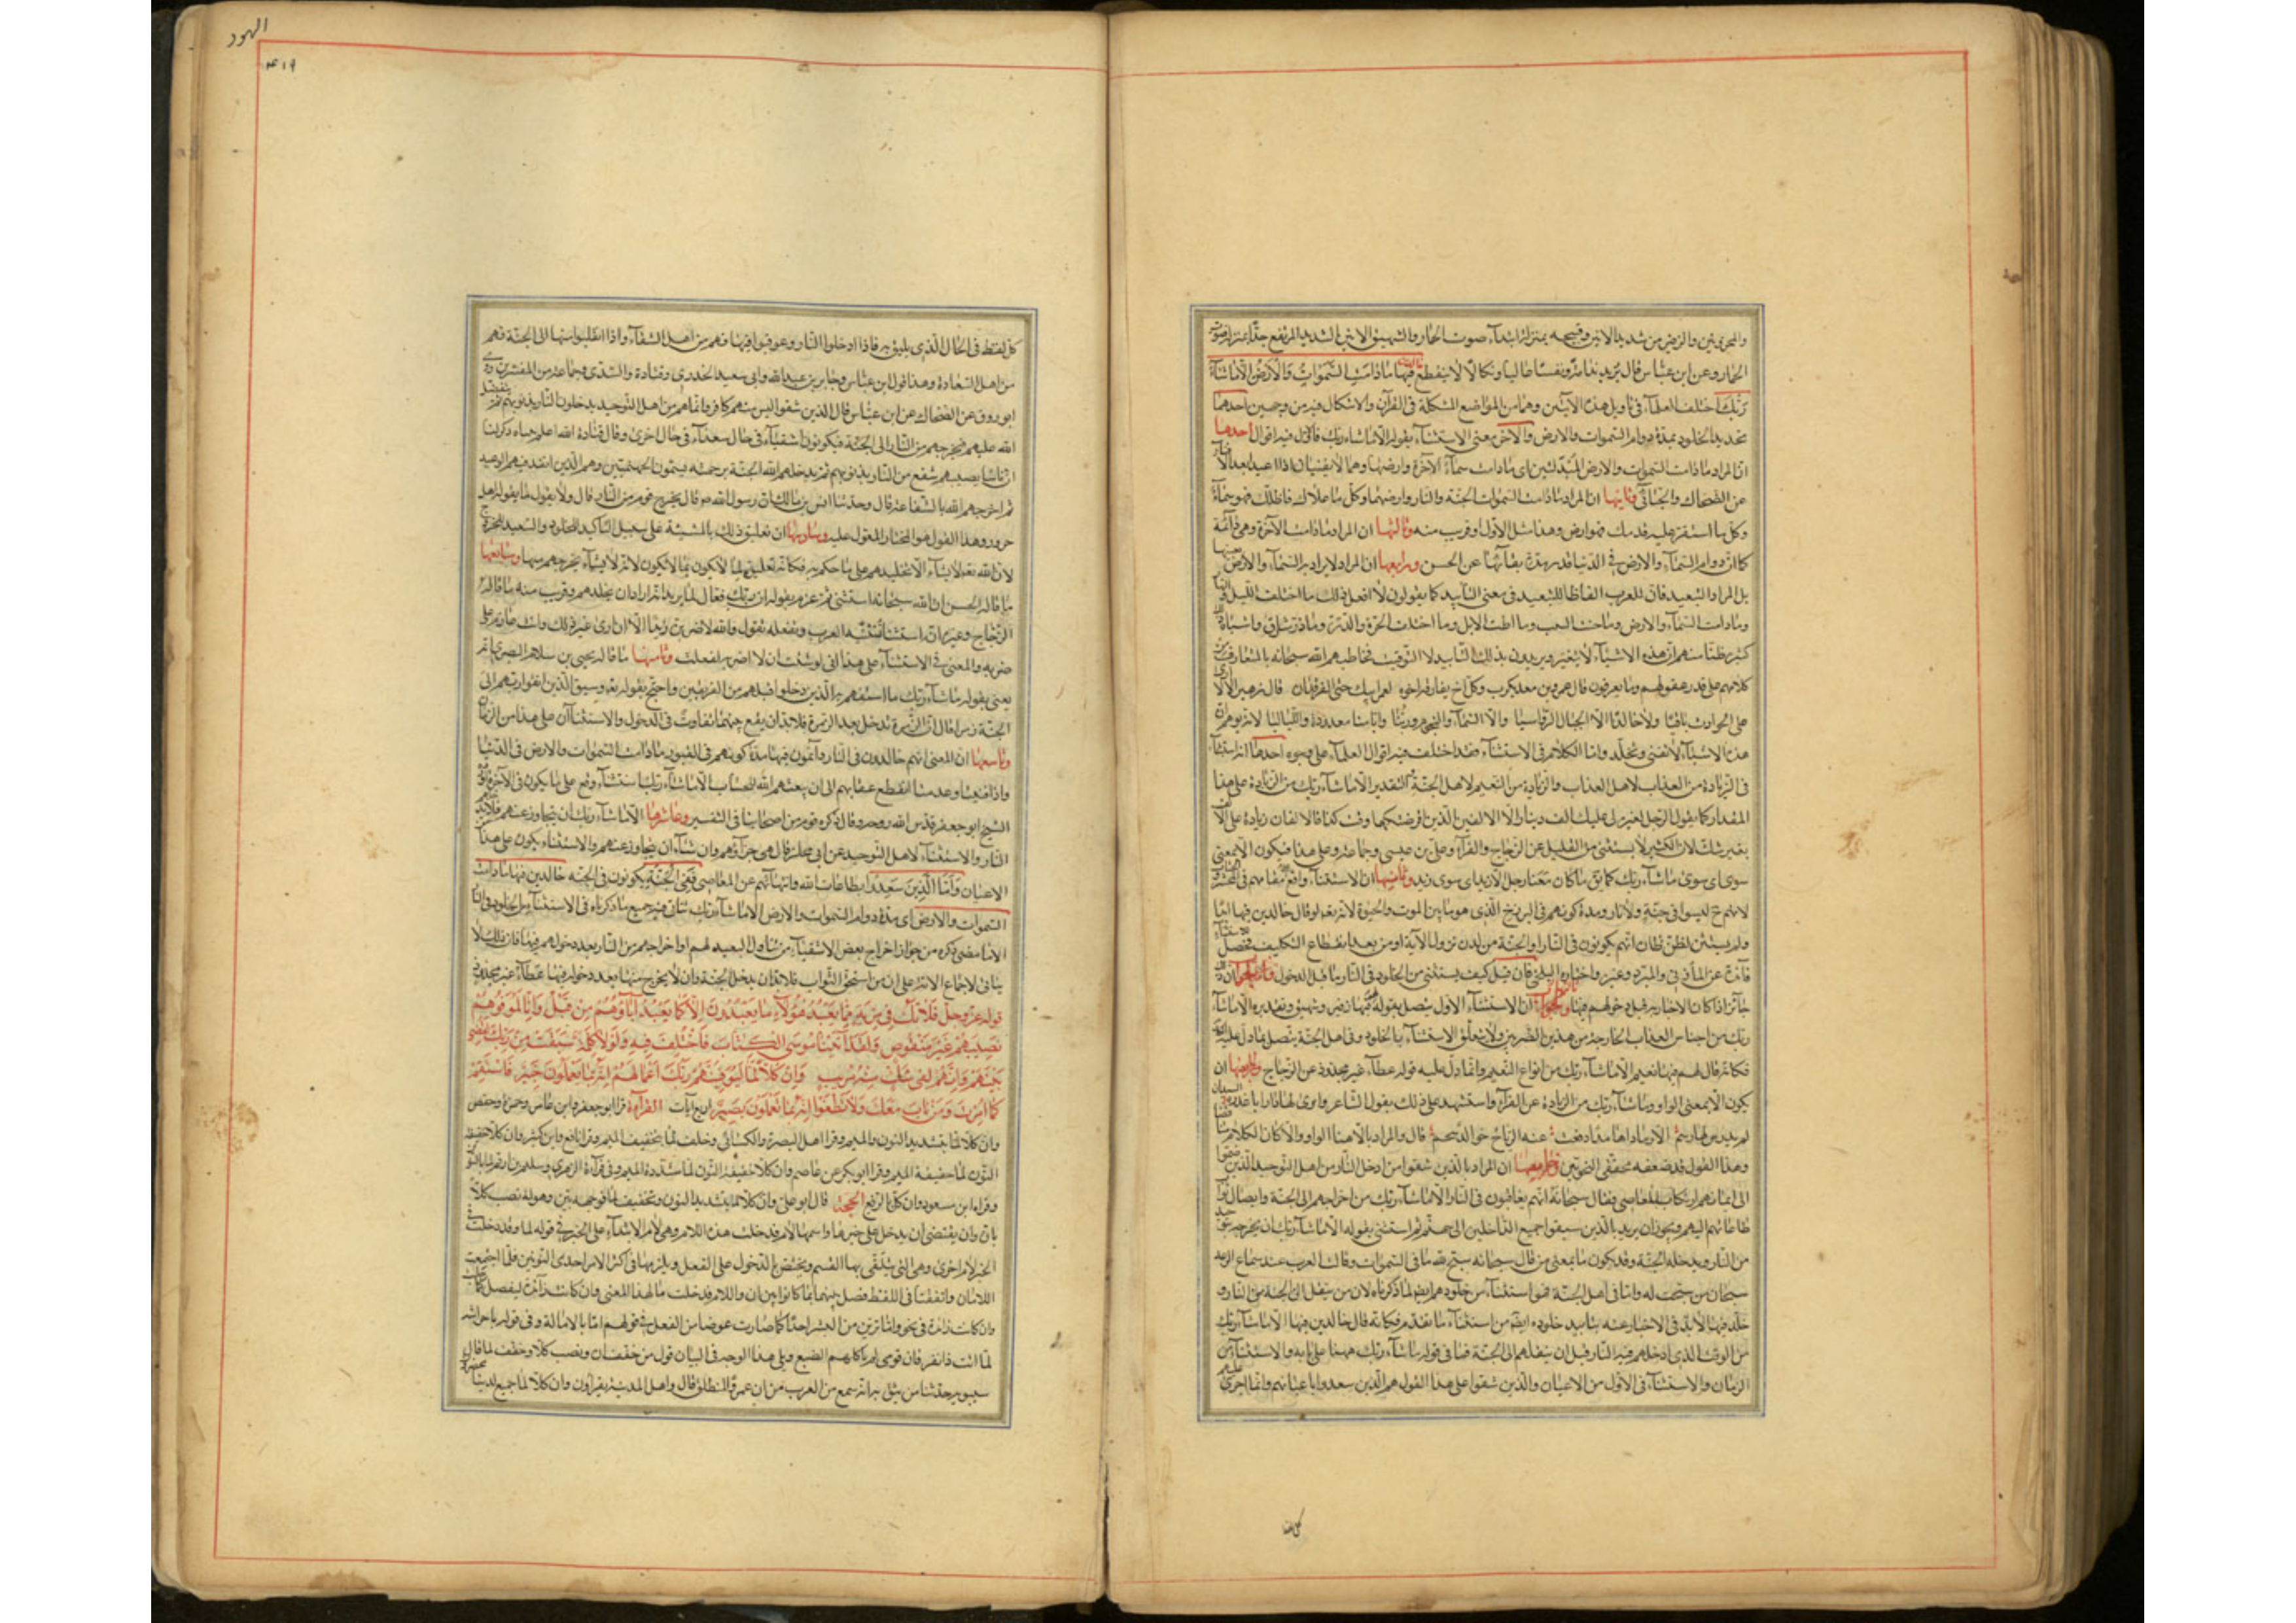 والمحزونين والزفير من شديد الانين وقبيحه بمنزلة ابتداء صوت الحمار والشهيق الانين الشديد المرتفع جدا بمنزلة اخر صوت
الحمار وعن ابن عباس قال يريد ندامة ونفسا عاليا وبكاء لا ينقطع خالدين فيها ما دامت السموات والارض الا ما شاء
ربك اختلف العلماء في تاويل هذه الآيتين وهما من المواضع المشكلة في القرآن والاشكال فيه من وجهين احدهما
تحديد الخلود بمدة دوام السموات والارض والاخر معنى الاستثناء بقوله الا ما شاء ربك فالاول فيه اقوال احدها
ان المراد ما دامت السموات والارض المبدلتين اى ما دامت سماء الآخرة وارضها وهما لا يفنيان اذا اعيدا بعد الافناء
عن الضحاك والجبائي وثانيها ان المراد ما دامت السموات الجنة والنار وارضهما وكل ما علاك فاظلك فهو سماء
وكل ما استقر عليه قدمك فهو ارض وهذا مثل الاول او قريب منه وثالثها ان المراد ما دامت الآخرة وهي دائمة
كما ان دوام السماء والارض في الدنيا قدر مدة بقائها عن الحسن ورابعها ان المراد لا يراد به السماء والارض بعينها
بل المراد التبعيد فان للعرب الفاظا للتبعيد في معنى التأبيد كما يقولون لا افعل ذلك ما اختلف الليل والنهار
وما دامت السماء والارض وما اطت الابل وما اختلفت الجرة والدرة وما ذر شارق واشباه ذلك
كثيرة ظنا منهم ان هذه الاشياء لا يتغير ويريدون بذلك التابيد لا التوقيت فخاطبهم الله سبحانه بالمتعارف من
كلامهم على قدر عقولهم وما يعرفون قال عمرو بن معديكرب وكل اخ يفارقه اخوه لعمر ابيك حتى الفرقدان قال زهير الا لا ارى
على الحوادث باقيا ولا خالدا الا الجبال الرواسيا والا السماء والنجوم وربنا وايامنا معدودة واللياليا لانه توهم ان
هذه الاشياء لا تفنى وتخلد واما الكلام في الاستثناء فقد اختلف فيه اقوال العلماء على وجوه احدها انه استثناء
في الزيادة من العذاب لاهل العذاب والزيادة من النعيم لاهل الجنة والتقدير الا ما شاء ربك من الزيادة على هذا
المقدار كما يقول الرجل لغيره لي عليك الف دينار الا الالفين الذين اقرضتكهما وقت كذا فالالفان زيادة على الالف
بغير شك لان الكثير لا يستثنى من القليل عن الزجاج والفراء وعلي بن عيسى وجماعة وعلى هذا فيكون الا بمعنى
سوى اى سوى ما شاء ربك كما يق ما كان معنا رجل الا زيد اى سوى زيد وثانيها ان الاستثناء واقع على مقامهم في المحشر
لانهم ح ليسوا في جنة ولا نار ومدة كونهم في البرزخ الذي هو ما بين الموت والحيوة لانه تعه لو قال خالدين فيها ابدا
ولم يستثن لظن ظان انهم يكونون في النار او الجنة من لدن نزول الآية او من بعد انقطاع التكليف فحصل للاستثناء
فائدة عن المازني والمبرد وغيره واختاره البلخي فان قيل كيف يستثنى من الخلود في النار ما قبل الدخول
جائز اذا كان الاخبار به قبل دخولهم فيها ان الاستثناء الاول يتصل بقوله لهم فيها زفير وشهيق وتقديره الا ما شاء
ربك من اجناس العذاب الخارجة من هذين الضربين ولا يتعلق الاستثناء بالخلود وفي اهل الجنة يتصل بما دل عليه الكلام
فكانه قال لهم فيها نعيم الا ما شاء ربك من انواع النعيم وانما دل عليه قوله عطاء غير مجذوذ عن الزجاج ورابعها ان
يكون الا بمعنى الواو وما شاء ربك من الزيادة عن الفراء واستشهد على ذلك بقول الشاعر وارى لها دارا باغدرة السيدان
لم يدرس لها رسم الا رمادا هامدا دفعت عنه الرياح خوالد سحم قال والمراد بالا هنا الواو والا كان الكلام متناقضا
وهذا القول قد ضعفه محققي النحويين وخامسها ان المراد بالذين شقوا من ادخل النار من اهل التوحيد الذين ضموا
الى ايمانهم ارتكاب المعاصي فقال سبحانه انهم يعاقبون في النار الا ما شاء ربك من اخراجهم الى الجنة وايصال ثواب
طاعاتهم اليهم ويجوز ان يريد بالذين شقوا جميع الداخلين الى جهنم ثم استثنى بقوله الا ما شاء ربك ان يخرجه بتوحيده
من النار ويدخله الجنة وقد يكون ما بمعنى من قال سبحانه سبح لله ما في السموات وقالت العرب عند سماع الرعد
سبحان من سبحت له واما في اهل الجنة فهو استثناء من خلودهم ايضا لما ذكرناه لان من ينقل الى الجنة من النار و
خلد فيها لا بد في الاخبار عنه بتابيد خلوده ايضا من استثناء ما تقدم فكانه قال خالدين فيها الا ما شاء ربك
من الوقت الذي ادخلهم فيه النار قبل ان ينقلهم الى الجنة فما في قوله ما شاء ربك ههنا على بابه والاستثناء من
الزمان والاستثناء في الاول من الاعيان والذين شقوا على هذا القول هم الذين سعدوا باعيانهم وانما اجرى عليهم
كل لفظ
الهود
٤١٩
كل لفظ في الحال الذي يليق به فاذا ادخلوا النار وعوقبوا فيها فهم من اهل الشقاء واذا انقلبوا منها الى الجنة فهم
من اهل السعادة وهذا قول ابن عباس وجابر بن عبد الله وابي سعيد الخدري وقتادة والسدي وجماعة من المفسرين وروى
ابو روق عن الضحاك عن ابن عباس قال الذين شقوا ليس منهم كافر وانما هم من اهل التوحيد يدخلون النار بذنوبهم ثم يتفضل
الله عليهم فيخرجهم من النار الى الجنة فيكونون اشقياء في حال سعداء في حال اخرى وقال قتادة الله اعلم بثنياه ذكر لنا
ان ناسا يصيبهم سفع من النار بذنوبهم ثم يدخلهم الله الجنة برحمته يسمون الجهنميين وهم الذين انفذ فيهم الوعيد
ثم اخرجهم الله بالشفاعة قال وحدثنا انس بن مالك ان رسول الله ص قال يخرج قوم من النار قال ولا يقول ما يقوله اهل
حرورا وهذا القول هو المختار المعول عليه وسادسها ان تعليق ذلك بالمشية على سبيل التاكيد للخلود والتبعيد للخروج
لان الله تعه لا يشاء الا تخليدهم على ما حكم به فكانه تعليق لما لا يكون بما لا يكون لانه لا يشاء يخرجهم منها وسابعها
ما قاله الحسن ان الله سبحانه استثنى ثم عزم بقوله ان ربك فعال لما يريد انه اراد ان يخلدهم وقريب منه ما قاله
الزجاج وغيره انه استثناء تستثنيه العرب وتفعله تقول والله لاضربن زيدا الا ان ارى غير ذلك وانت عازم على
ضربه والمعنى في الاستثناء على هذا اني لو شئت ان لا اضربه لفعلت وثامنها ما قاله يحيى بن سلام البصري انه
يعني بقوله ما شاء ربك ما سبقهم به الذين دخلوا قبلهم من الفريقين واحتج بقوله تعه وسيق الذين اتقوا ربهم الى
الجنة زمرا قال ان الزمرة تدخل بعد الزمرة فلا بد ان يقع بينهما تفاوت في الدخول والاستثناآن على هذا من الزمان
وتاسعها ان المعنى انهم خالدون في النار دائمون فيها مدة كونهم في القبور ما دامت السموات والارض في الدنيا
واذا فنيتا وعدمتا انقطع عقابهم الى ان يبعثهم الله للحساب الا ما شاء ربك استثناء وقع على ما يكون في الآخرة اورده
الشيخ ابو جعفر قدس الله روحه وقال ذكره قوم من اصحابنا في التفسير وعاشرها الا ما شاء ربك ان يتجاوز عنهم فلا يدخلهم
النار والاستثناء لاهل التوحيد عن ابي مجلز قال هي جزاؤهم وان شاء ان يتجاوز عنهم والاستثناء يكون على هذا
الاعيان واما الذين سعدوا بطاعات الله وانتهائهم عن المعاصي ففي الجنة يكونون في الجنة خالدين فيها ما دامت
السموات والارض اى مدة دوام السموات والارض الا ما شاء ربك يتاتى فيه جميع ما ذكرناه في الاستثناء من الخلود في النار
الا ما مضى ذكره من جواز اخراج بعض الاشقياء من تناول الوعيد لهم او اخراجهم من النار بعد دخولهم فيها فان ذلك لا
يتاتى لاجماع الامة على ان من استحق الثواب فلا بد ان يدخل الجنة وان لا يخرج منها بعد دخوله فيها عطاء غير مجذوذ
قوله عز وجل فلا تك في مرية مما يعبد هؤلاء ما يعبدون الا كما يعبد آباؤهم من قبل وانا لموفوهم
نصيبهم غير منقوص ولقد آتينا موسى الكتاب فاختلف فيه ولولا كلمة سبقت من ربك لقضي
بينهم وانهم لفي شك منه مريب وان كلا لما ليوفينهم ربك اعمالهم انه بما يعملون خبير فاستقم
كما امرت ومن تاب معك ولا تطغوا انه بما تعملون بصير اربع آيات القراءة قرا ابو جعفر وابن عامر وحمزة وحفص
وان كلا لما بتشديد النون والميم وقرا اهل البصرة والكسائي وخلف لما بتخفيف الميم وقرا نافع وابن كثير وان كلا خفيفة
النون لما خفيفة الميم وقرا ابو بكر عن عاصم وان كلا خفيفة النون لما مشددة الميم وفي قراءة الزهري وسليمان بن ارقم لما بالتنوين
وقراءة ابن مسعود وان كل بالرفع الحجة قال ابو علي وان كلا لما بتشديد النون وتخفيف لما فوجهه بين وهو انه نصب كلا
بان وان يقتضي ان يدخل على خبرها او اسمها لام فدخلت هذه اللام وهي لام الابتداء على الخبر في قوله لما وقد دخلت في
الخبر لام اخرى وهي التي يتلقى بها القسم ويختص بالدخول على الفعل ويلزمها في اكثر الامر احدى النونين فلما اجتمعت
اللامان واتفقتا في اللفظ فصل بينهما بما كما فصل بين ان واللام فدخلت ما لهذا المعنى وان كانت زائدة ليفصل
وان كانت زائدة في نحو فاما ترين من البشر احدا كما صارت عوضا من الفعل في قولهم اما بالامالة وفي قوله ابا خراشة
اما انت ذا نفر فان قومي لم تاكلهم الضبع ويلي هذا الوجه في البيان قول من خفف ان ونصب كلا وخفف لما قال
سيبويه حدثنا من يثق به انه سمع من العرب من ان عمرا لمنطلق قال واهل المدينة يقراون وان كلا لما جميع لدينا محضرون